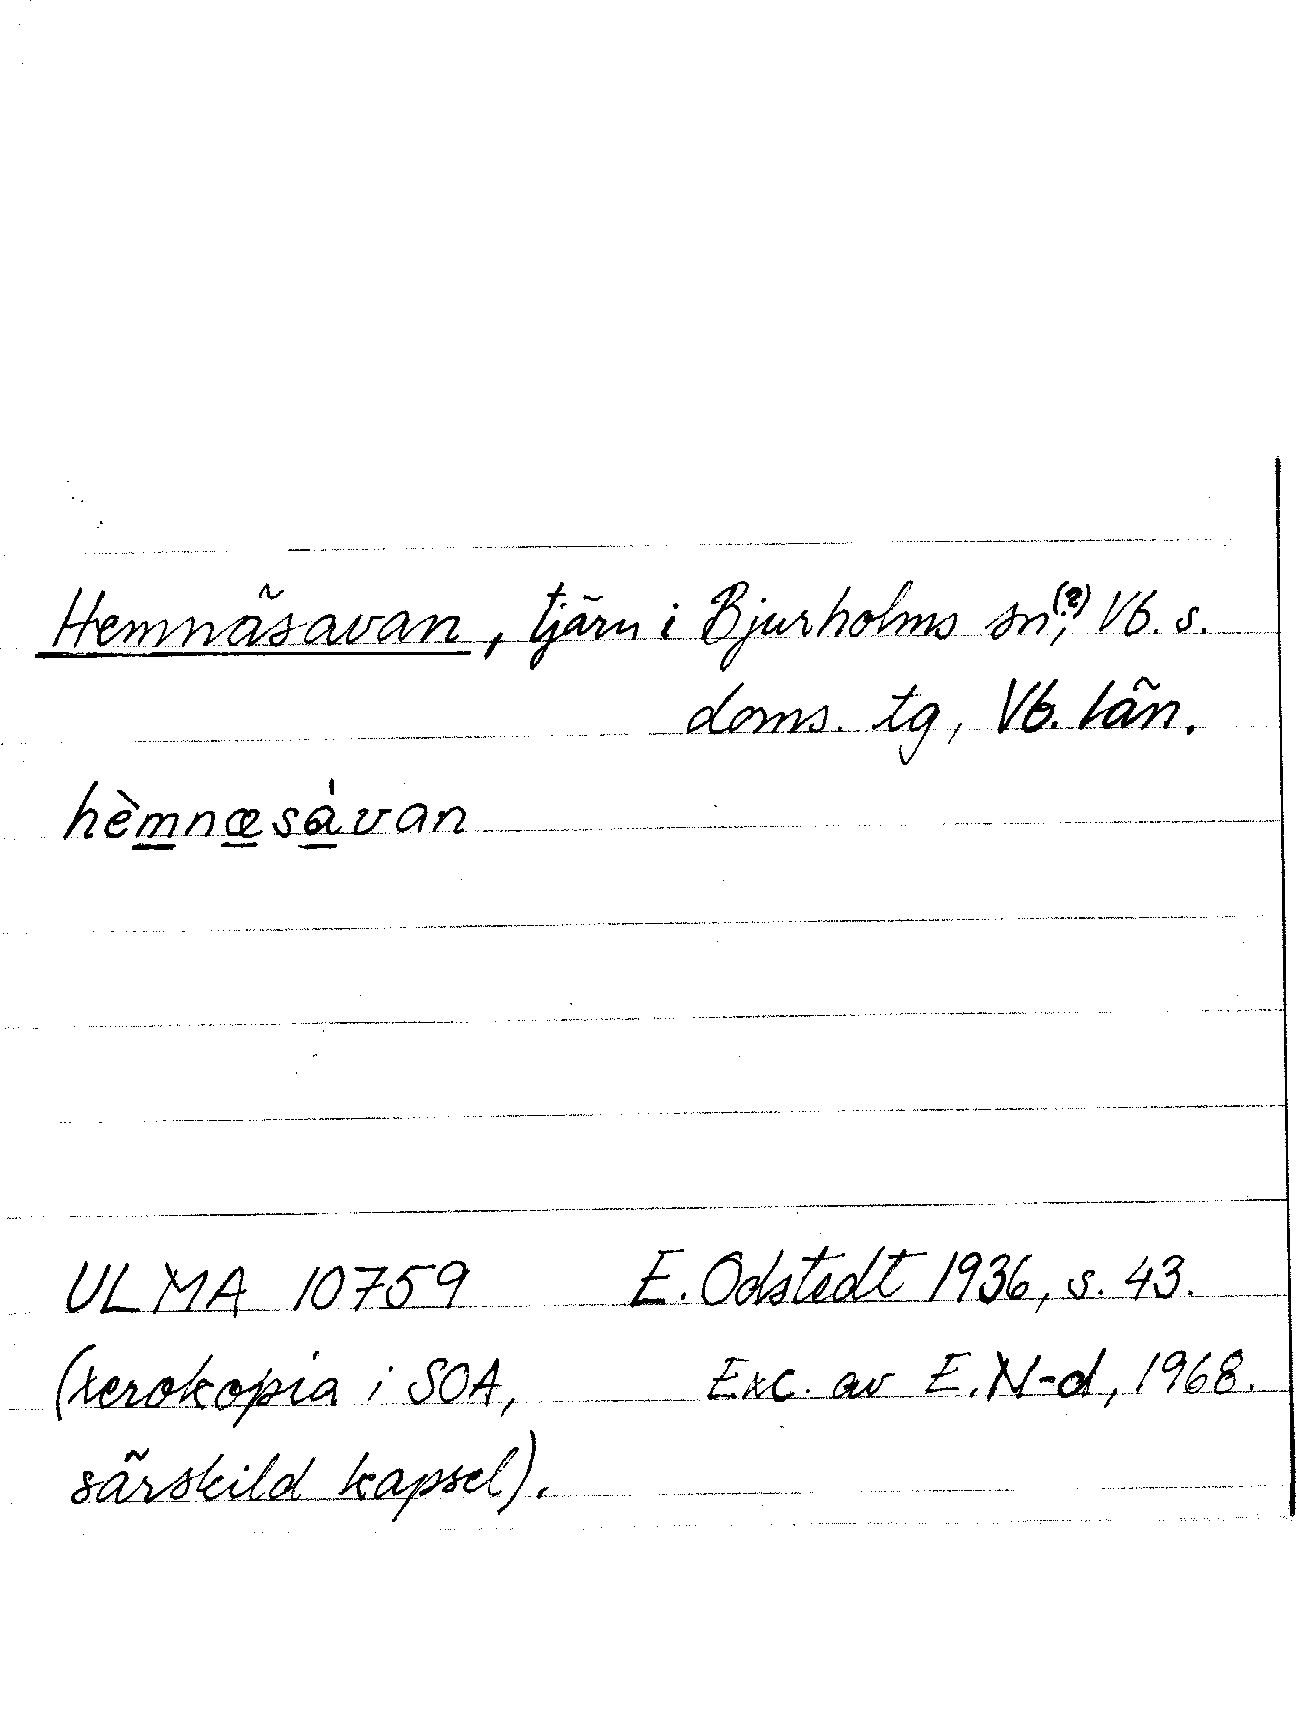 Hemnäsavan, tjärn i Bjurholms sn(?), Vb. s.
doms. tg, Vb. län.
hèmnæsàvan
ULMA 10759 E. Odstedt 1936, s. 43.
(xerokopia i SOA, Exc. av E. N-d, 1968.
särskild kapsel).